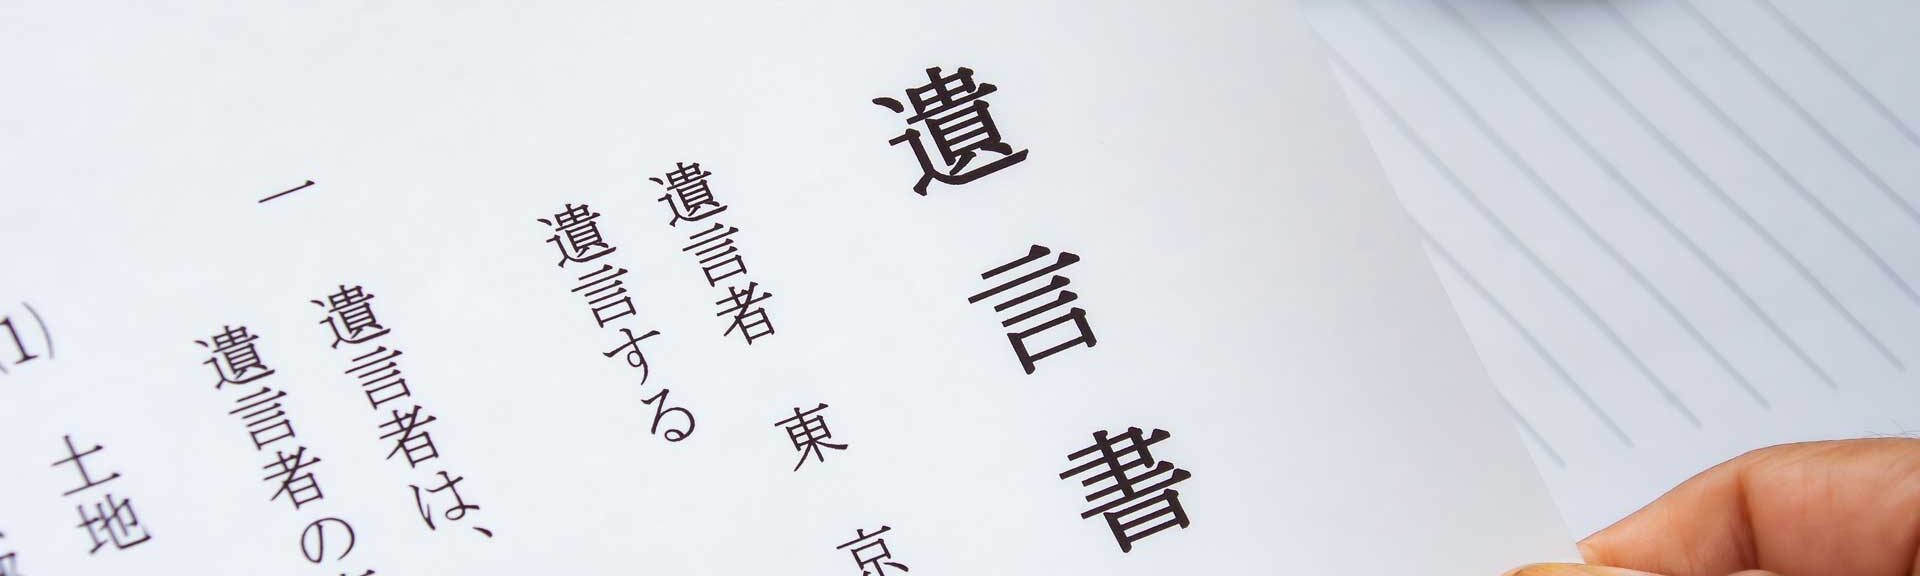 遺言書
遺言者　東　京
遺言する
一　遺言者は、
遺言者の
(1)　土地